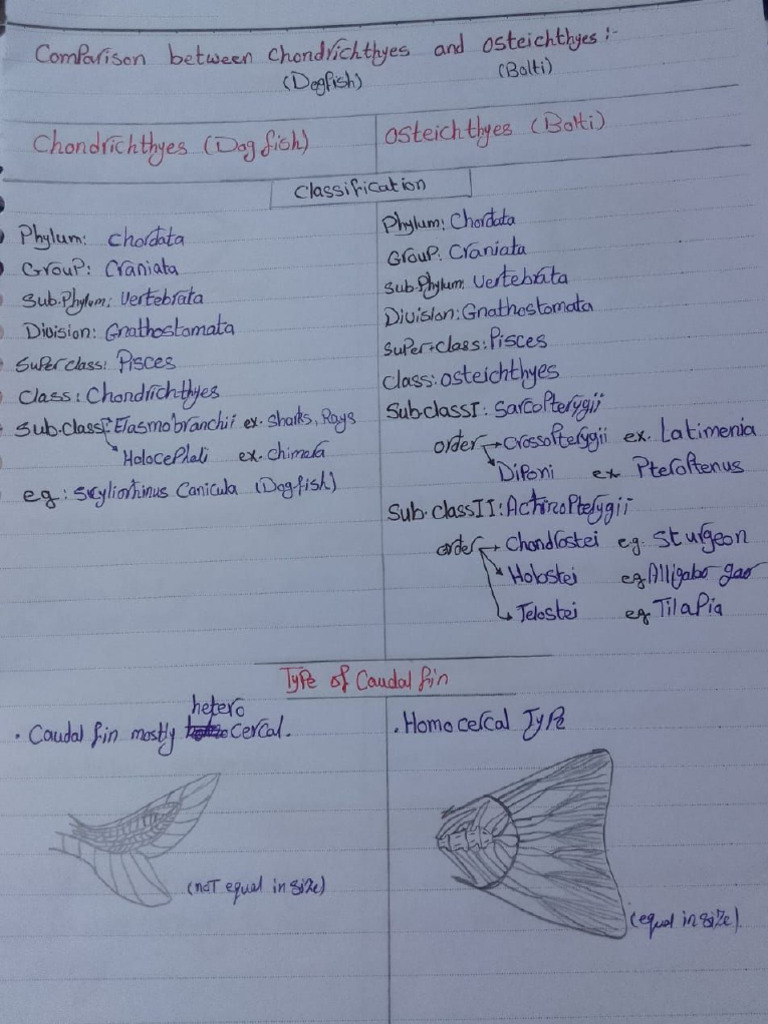 Comparison between Chondrichthyes and Osteichthyes :-
(Dogfish) (Bolti)
Chondrichthyes (Dog fish)
Osteichthyes (Bolti)
Classification
Phylum: Chordata
Group: Craniata
Sub.Phylum: Vertebrata
Division: Gnathostomata
Super class: Pisces
Class: Chondrichthyes
Sub.class: Elasmobranchii ex. Sharks, Rays
Holocephali ex. Chimera
eg: Scyliorhinus Canicula (Dog-fish)
Phylum: Chordata
Group: Craniata
Sub.Phylum: Vertebrata
Division: Gnathostomata
Super-class: Pisces
Class: Osteichthyes
Sub.class I: Sarcopterygii
order → Crossopterygii ex. Latimenia
Diponi ex Pteroptenus
Sub.class II: Actinopterygii
order → Chondrostei eg. Sturgeon
Holostei eg Alligator gar
Telostei eg Tilapia
Type of Caudal fin
• Caudal fin mostly hetero cercal.
(not equal in size)
• Homocercal Type
(equal in size)